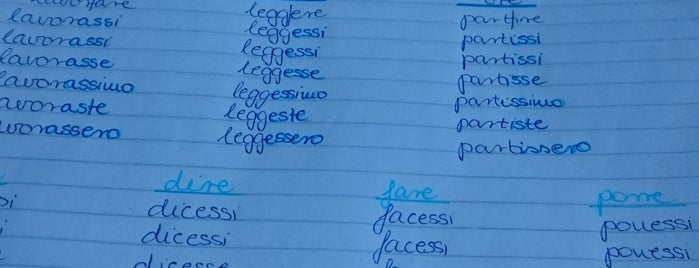 leggere partire
lavorassi leggessi partissi
lavorassi leggessi partissi
lavorasse leggesse partisse
lavorassimo leggessimo partissimo
avoraste leggeste partiste
vorassero leggessero partissero
dire fare porre
dicessi facessi ponessi
dicessi facessi ponessi
dicesse